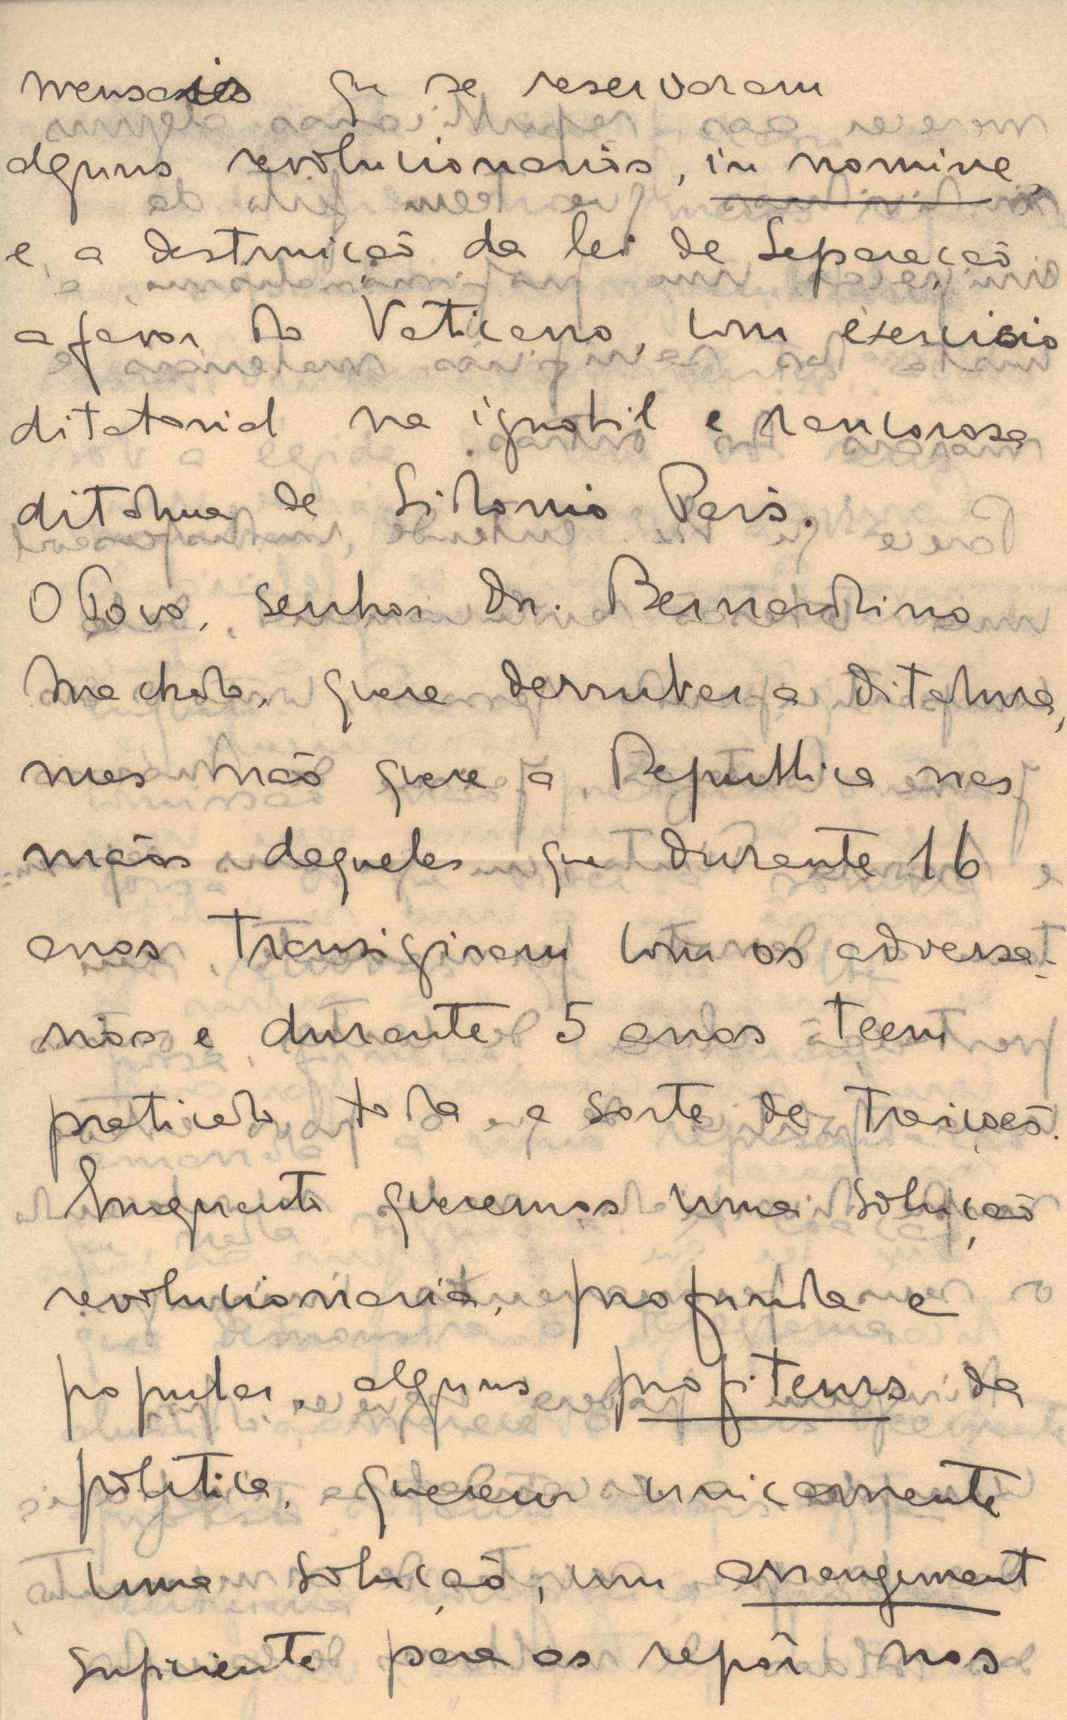 mensaes que se reservaram
alguns revolucionarios, in nomine,
e, a destruição da lei de Separação
a favor do Vaticano, com exercicio
ditatorial na ignobil e rancorosa
ditadura de Sidonio Pais.
O Povo, senhor Dr. Bernardino
Machado, quere derrubar a ditadura,
mas não quere a Republica nas
mãos daqueles que durante 16
anos transigiram com os adversa-
rios e durante 5 anos teem
praticado toda a sorte de traições.
Emquanto queremos uma solução
revolucionaria, profunda e
popular, alguns profiteurs da
politica, querem unicamente
uma solução, um arrangement
suficiente para os repôr nos